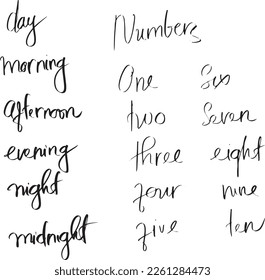 day
morning
afternoon
evening
night
midnight
Numbers
One Six
two Seven
three eight
four nine
five ten
shutterstock.com · 2261284473